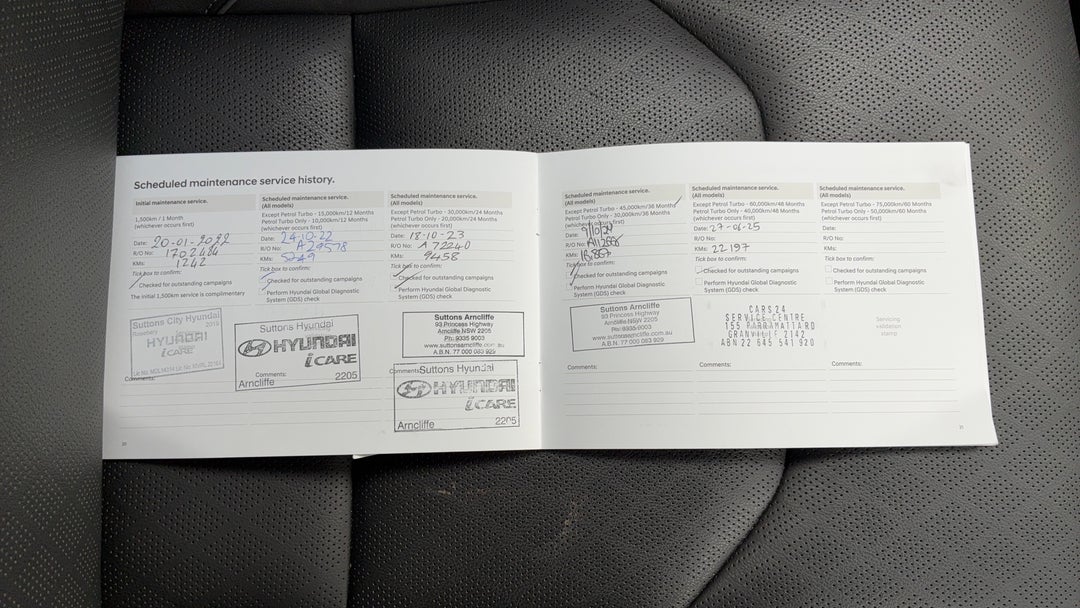 Scheduled maintenance service history.
Initial maintenance service.
1,500km / 1 Month
(whichever occurs first)
Date: 20-01-2022
R/O No: 1702444
KMs: 1242
Tick box to confirm:
Checked for outstanding campaigns
The initial 1,500km service is complimentary
Suttons City Hyundai
Rosebery 2018
HYUNDAI
iCARE
Comments:
20
Scheduled maintenance service.
(All models)
Except Petrol Turbo - 15,000km/12 Months
Petrol Turbo Only - 10,000km/12 Months
(whichever occurs first)
Date: 24-10-22
R/O No: A29578
KMs: 5249
Tick box to confirm:
Checked for outstanding campaigns
Perform Hyundai Global Diagnostic
System (GDS) check
Suttons Hyundai
HYUNDAI
iCARE
Comments:
Arncliffe 2205
Scheduled maintenance service.
(All models)
Except Petrol Turbo - 30,000km/24 Months
Petrol Turbo Only - 20,000km/24 Months
(whichever occurs first)
Date: 18-10-23
R/O No: A72240
KMs: 9458
Tick box to confirm:
Checked for outstanding campaigns
Perform Hyundai Global Diagnostic
System (GDS) check
Suttons Arncliffe
93 Princess Highway
Arncliffe NSW 2205
Ph: 9335 9003
www.suttonsarncliffe.com.au
A.B.N. 77 000 083 929
Comments:
Suttons Hyundai
HYUNDAI
iCARE
Arncliffe 2205
Scheduled maintenance service.
(All models)
Except Petrol Turbo - 45,000km/36 Months
Petrol Turbo Only - 30,000km/36 Months
(whichever occurs first)
Date: 9/10/24
R/O No:
KMs:
Tick box to confirm:
Checked for outstanding campaigns
Perform Hyundai Global Diagnostic
System (GDS) check
Suttons Arncliffe
93 Princess Highway
Arncliffe NSW 2205
Ph: 9335 9003
www.suttonsarncliffe.com.au
A.B.N. 77 000 083 929
Comments:
Scheduled maintenance service.
(All models)
Except Petrol Turbo - 60,000km/48 Months
Petrol Turbo Only - 40,000km/48 Months
(whichever occurs first)
Date: 27-06-25
R/O No:
KMs: 22197
Tick box to confirm:
Checked for outstanding campaigns
Perform Hyundai Global Diagnostic
System (GDS) check
CARS24
SERVICE CENTRE
155 PARRAMATTA RD
GRANVILLE 2142
ABN 22 645 541 920
Comments:
Scheduled maintenance service.
(All models)
Except Petrol Turbo - 75,000km/60 Months
Petrol Turbo Only - 50,000km/60 Months
(whichever occurs first)
Date:
R/O No:
KMs:
Tick box to confirm:
Checked for outstanding campaigns
Perform Hyundai Global Diagnostic
System (GDS) check
Servicing
validation
stamp
Comments:
21